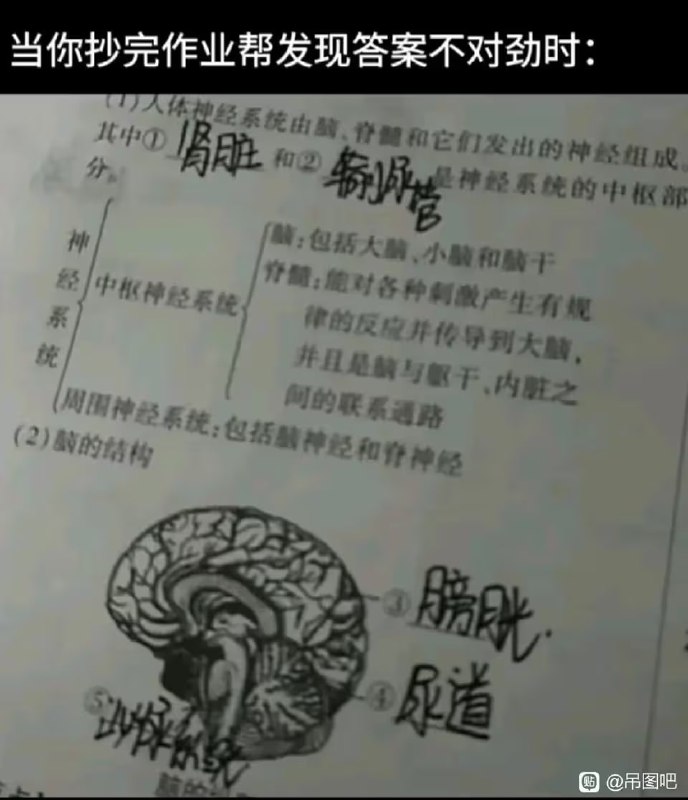 当你抄完作业帮发现答案不对劲时：
(1)人体神经系统由脑、脊髓和它们发出的神经组成。
其中①肾脏和②输尿管是神经系统的中枢部
分。
神经系统
中枢神经系统
脑：包括大脑、小脑和脑干
脊髓：能对各种刺激产生有规
律的反应并传导到大脑，
并且是脑与躯干、内脏之
间的联系通路
周围神经系统：包括脑神经和脊神经
(2)脑的结构
③膀胱.
④尿道
⑤泌尿系统
脑的
贴 @吊图吧